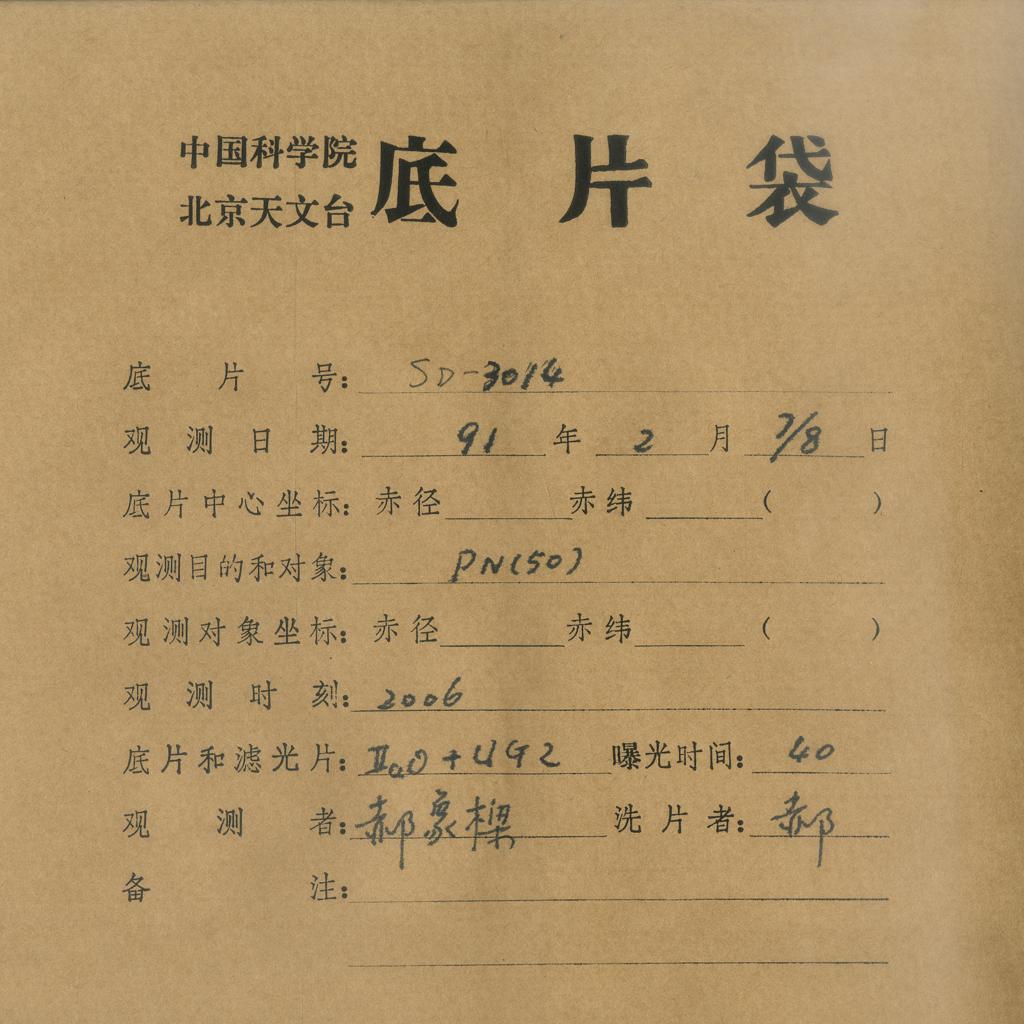 中国科学院
北京天文台
底片袋
底片号：SD-3014
观测日期：91年2月7/8日
底片中心坐标：赤径 赤纬 （ ）
观测目的和对象：PN(50)
观测对象坐标：赤径 赤纬 （ ）
观测时刻：2006
底片和滤光片：IIaO+UG2 曝光时间：40
观测者：郝象樑 洗片者：郝
备注：